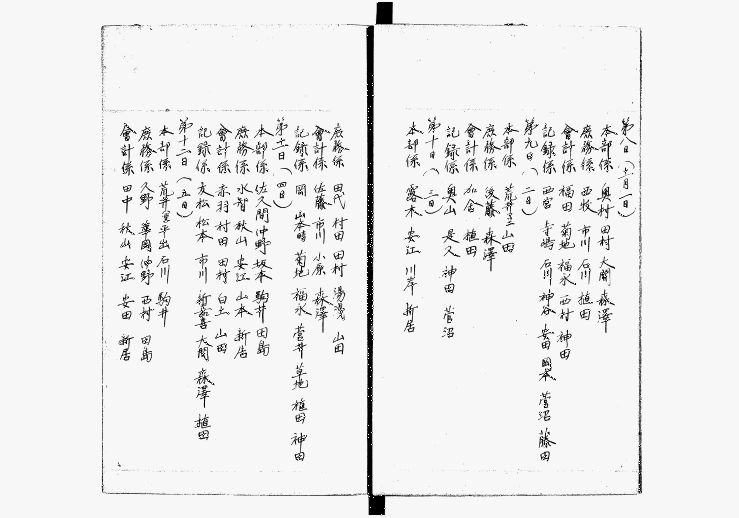 第八日(十一月一日)
本部係 奥村 田村 大関 森澤
庶務係 西牧 市川 石川 植田
会計係 福田 菊地 福永 西村 神田
記録係 西宮 寺嶋 石川 神谷 安田 岡本 菅沼 藤田
第九日(二日)
本部係 荒井 山田
庶務係 後藤 森澤
会計係 加舎 植田
記録係 奥山 是久 神田 菅沼
第十日(三日)
本部係 露木 安江 川岸 新居
庶務係 田代 村田 田村 湯浅 山田
會計係 佐藤 市川 小原 森澤
記録係 岡 山本晴 菊地 福永 菅井 草地 植田 神田
第十一日(四日)
本部係 佐久間 仲野 坂本 駒井 田島
庶務係 水智 秋山 安江 山本 新居
會計係 赤羽 村田 田村 白土 山田
記録係 友松 松本 市川 新 大関 森澤 植田
第十二日(五日)
本部係 荒井重平 出 石川 駒井
庶務係 久野 華岡 仲野 西村 田島
會計係 田中 秋山 安江 安田 新居